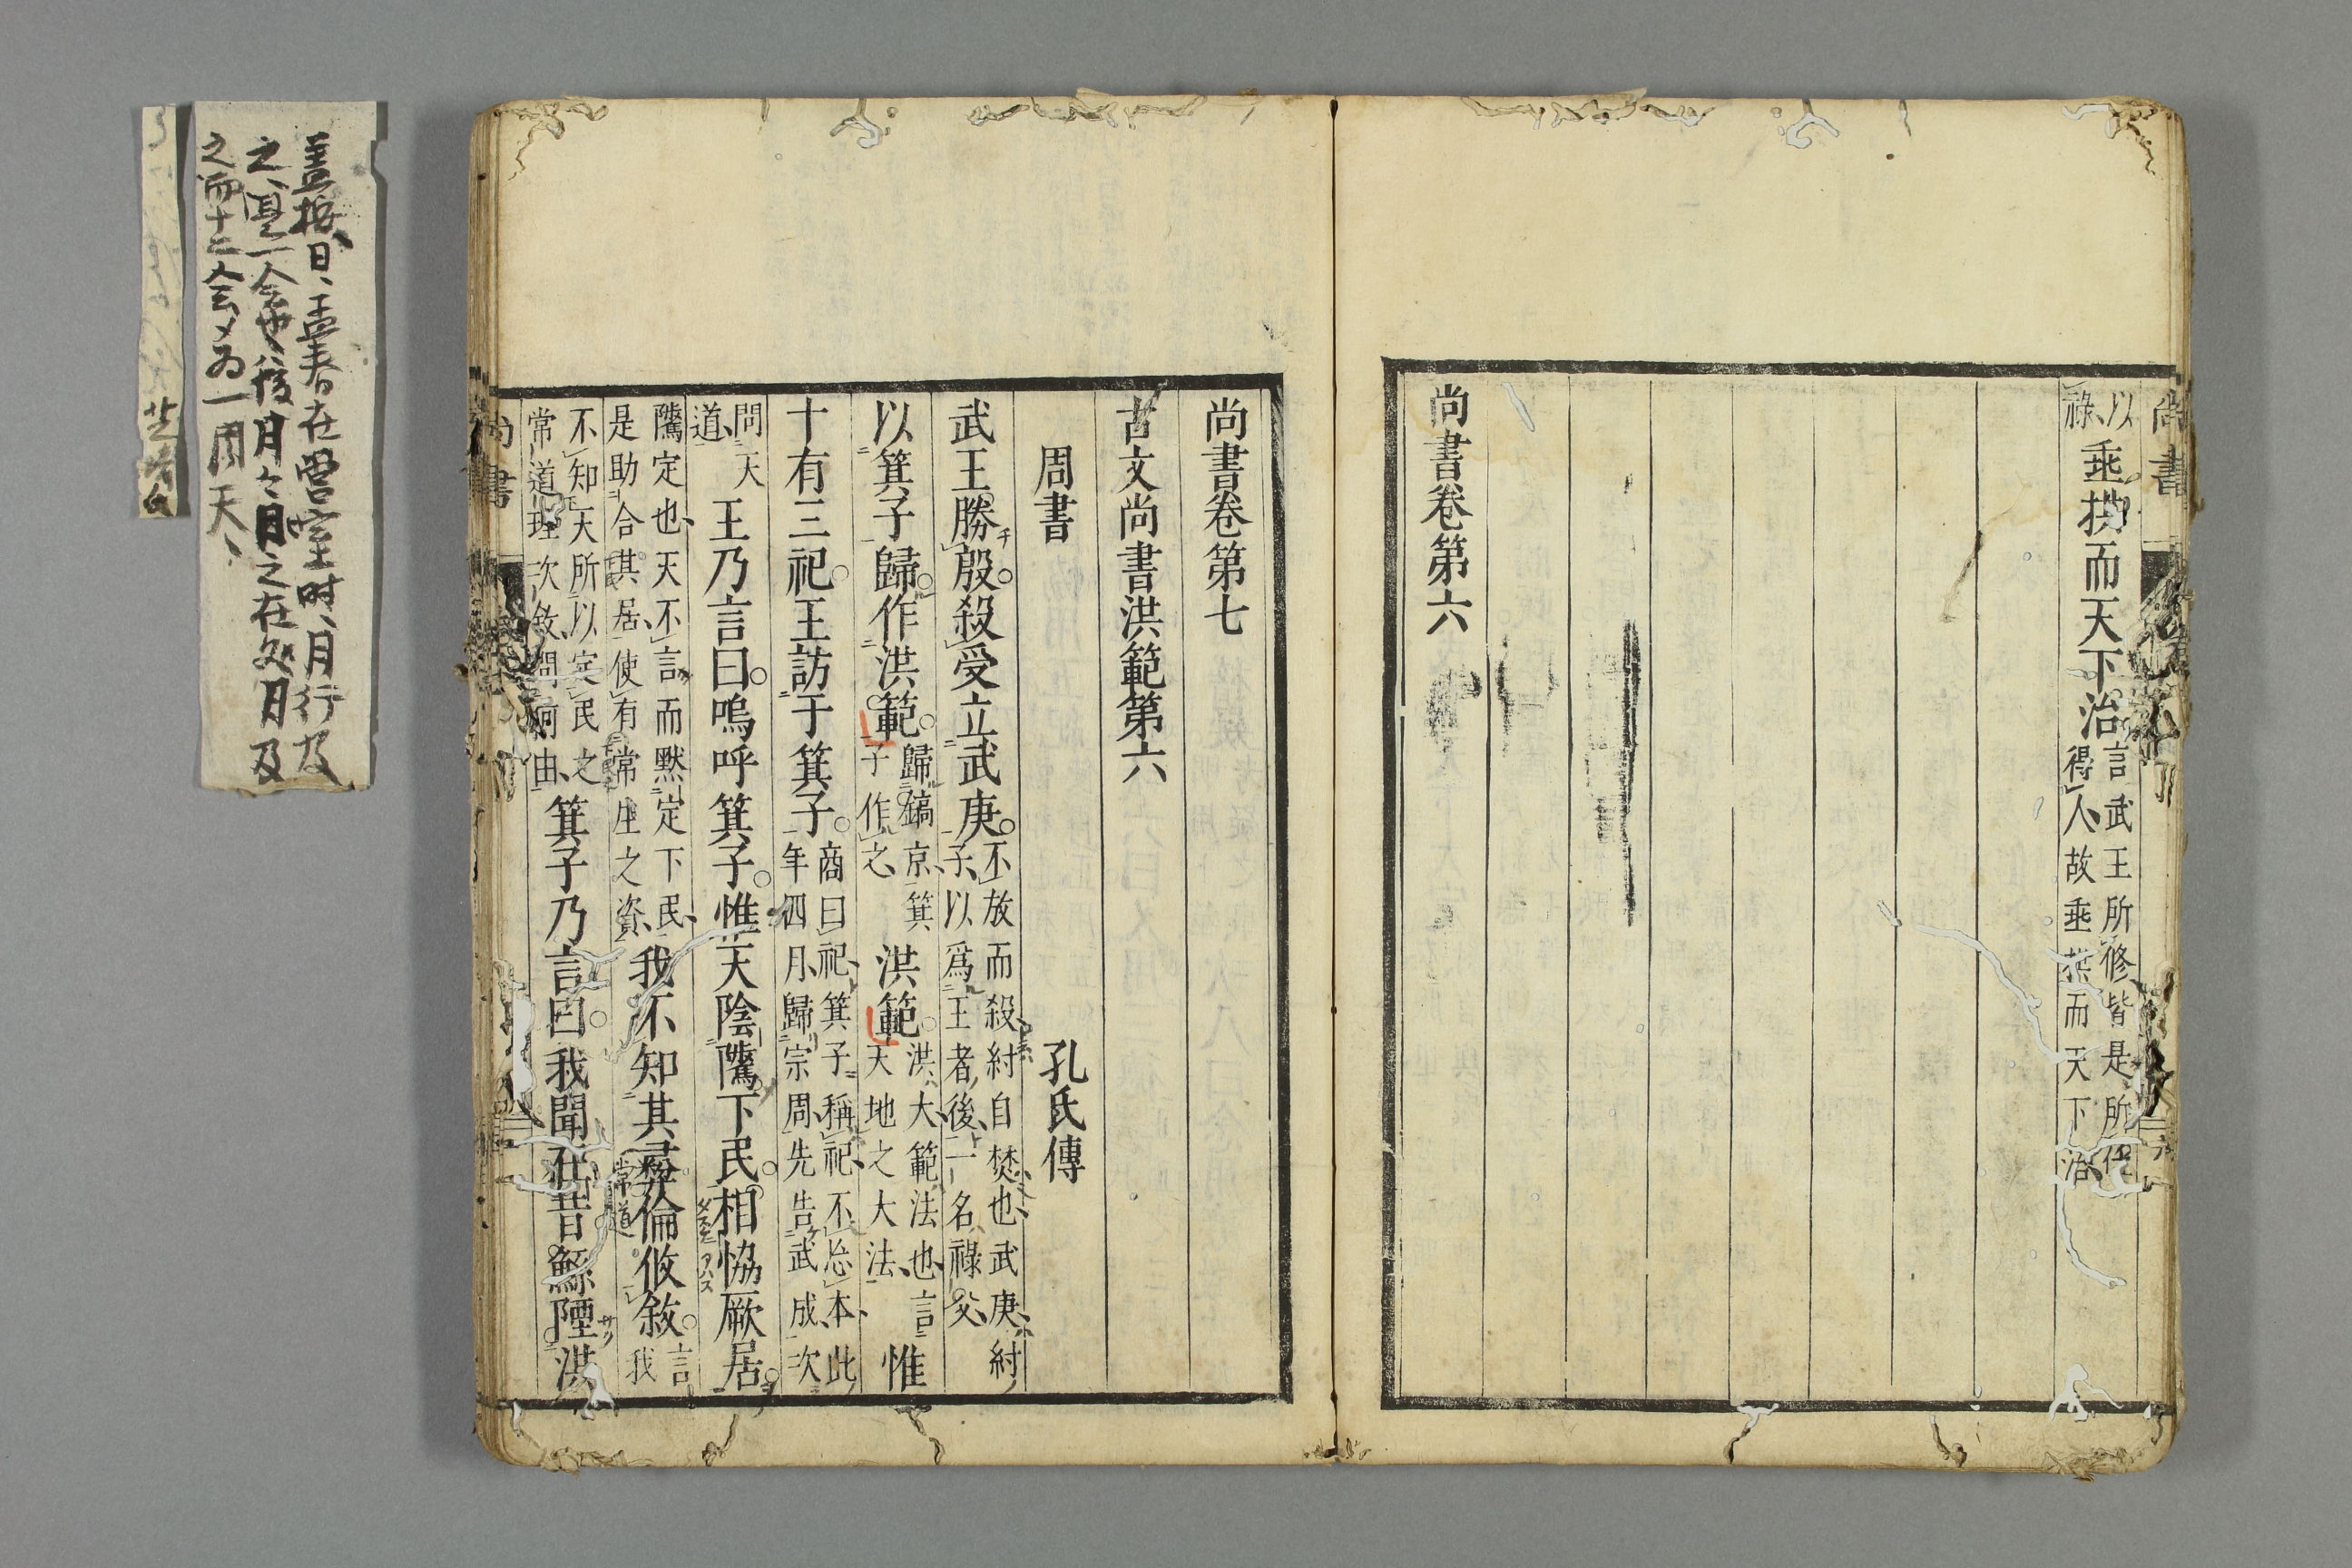 尚書
以祿垂拱而天下治言武王所修皆是所任得人故垂拱而天下治
尚書卷第六
尚書卷第七
古文尚書洪範第六
周書 孔氏傳
武王勝殷。殺受立武庚。不放而殺紂自焚也武庚紂子以爲王者後一名祿父
以箕子歸。作洪範。歸鎬京箕子作之洪範。洪大範法也言天地之大法惟
十有三祀。王訪于箕子。商曰祀箕子稱祀不忘本此年四月歸宗周先告武成次
問天道王乃言曰。嗚呼箕子。惟天陰騭下民。相恊厥居。
騭定也天不言而默定下民是助合其居使有常生之資我不知其彝倫攸敘。言我
不知天所以定民之常道理次敘問何由箕子乃言曰。我聞在昔鯀陻洪
尚書
蓋按日、孟春在営室时、月行及
之、是一会也、後月々日之在処月及
之而十二会メ為一周天、